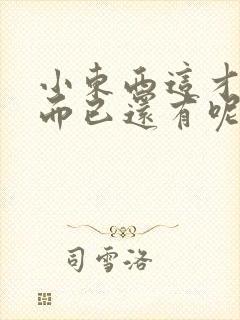 小東西這才
而已還有呢
司雪洛